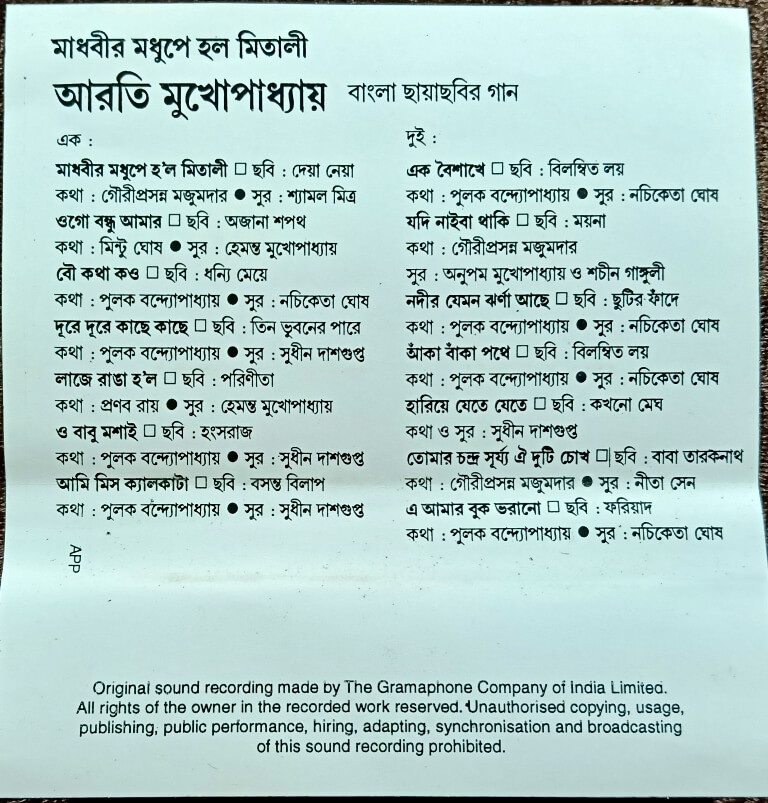 মাধবীর মধুপে হল মিতালী
আরতি মুখোপাধ্যায় বাংলা ছায়াছবির গান
এক :
মাধবীর মধুপে হ'ল মিতালী □ ছবি : দেয়া নেয়া
কথা : গৌরীপ্রসন্ন মজুমদার ● সুর : শ্যামল মিত্র
ওগো বন্ধু আমার □ ছবি : অজানা শপথ
কথা : মিন্টু ঘোষ ● সুর : হেমন্ত মুখোপাধ্যায়
বৌ কথা কও □ ছবি : ধন্যি মেয়ে
কথা : পুলক বন্দ্যোপাধ্যায় ● সুর : নচিকেতা ঘোষ
দূরে দূরে কাছে কাছে □ ছবি : তিন ভুবনের পারে
কথা : পুলক বন্দ্যোপাধ্যায় ● সুর : সুধীন দাশগুপ্ত
লাজে রাঙা হ'ল □ ছবি : পরিণীতা
কথা : প্রণব রায় ● সুর : হেমন্ত মুখোপাধ্যায়
ও বাবু মশাই □ ছবি : হংসরাজ
কথা : পুলক বন্দ্যোপাধ্যায় ● সুর : সুধীন দাশগুপ্ত
আমি মিস ক্যালকাটা □ ছবি : বসন্ত বিলাপ
কথা : পুলক বন্দ্যোপাধ্যায় ● সুর : সুধীন দাশগুপ্ত
APP
দুই :
এক বৈশাখে □ ছবি : বিলম্বিত লয়
কথা : পুলক বন্দ্যোপাধ্যায় ● সুর : নচিকেতা ঘোষ
যদি নাইবা থাকি □ ছবি : ময়না
কথা : গৌরীপ্রসন্ন মজুমদার
সুর : অনুপম মুখোপাধ্যায় ও শচীন গাঙ্গুলী
নদীর যেমন ঝর্ণা আছে □ ছবি : ছুটির ফাঁদে
কথা : পুলক বন্দ্যোপাধ্যায় ● সুর : নচিকেতা ঘোষ
আঁকা বাঁকা পথে □ ছবি : বিলম্বিত লয়
কথা : পুলক বন্দ্যোপাধ্যায় ● সুর : নচিকেতা ঘোষ
হারিয়ে যেতে যেতে □ ছবি : কখনো মেঘ
কথা ও সুর : সুধীন দাশগুপ্ত
তোমার চন্দ্র সূর্য্য ঐ দুটি চোখ □ ছবি : বাবা তারকনাথ
কথা : গৌরীপ্রসন্ন মজুমদার ● সুর : নীতা সেন
এ আমার বুক ভরানো □ ছবি : ফরিয়াদ
কথা : পুলক বন্দ্যোপাধ্যায় ● সুর : নচিকেতা ঘোষ
Original sound recording made by The Gramaphone Company of India Limited.
All rights of the owner in the recorded work reserved. Unauthorised copying, usage,
publishing, public performance, hiring, adapting, synchronisation and broadcasting
of this sound recording prohibited.